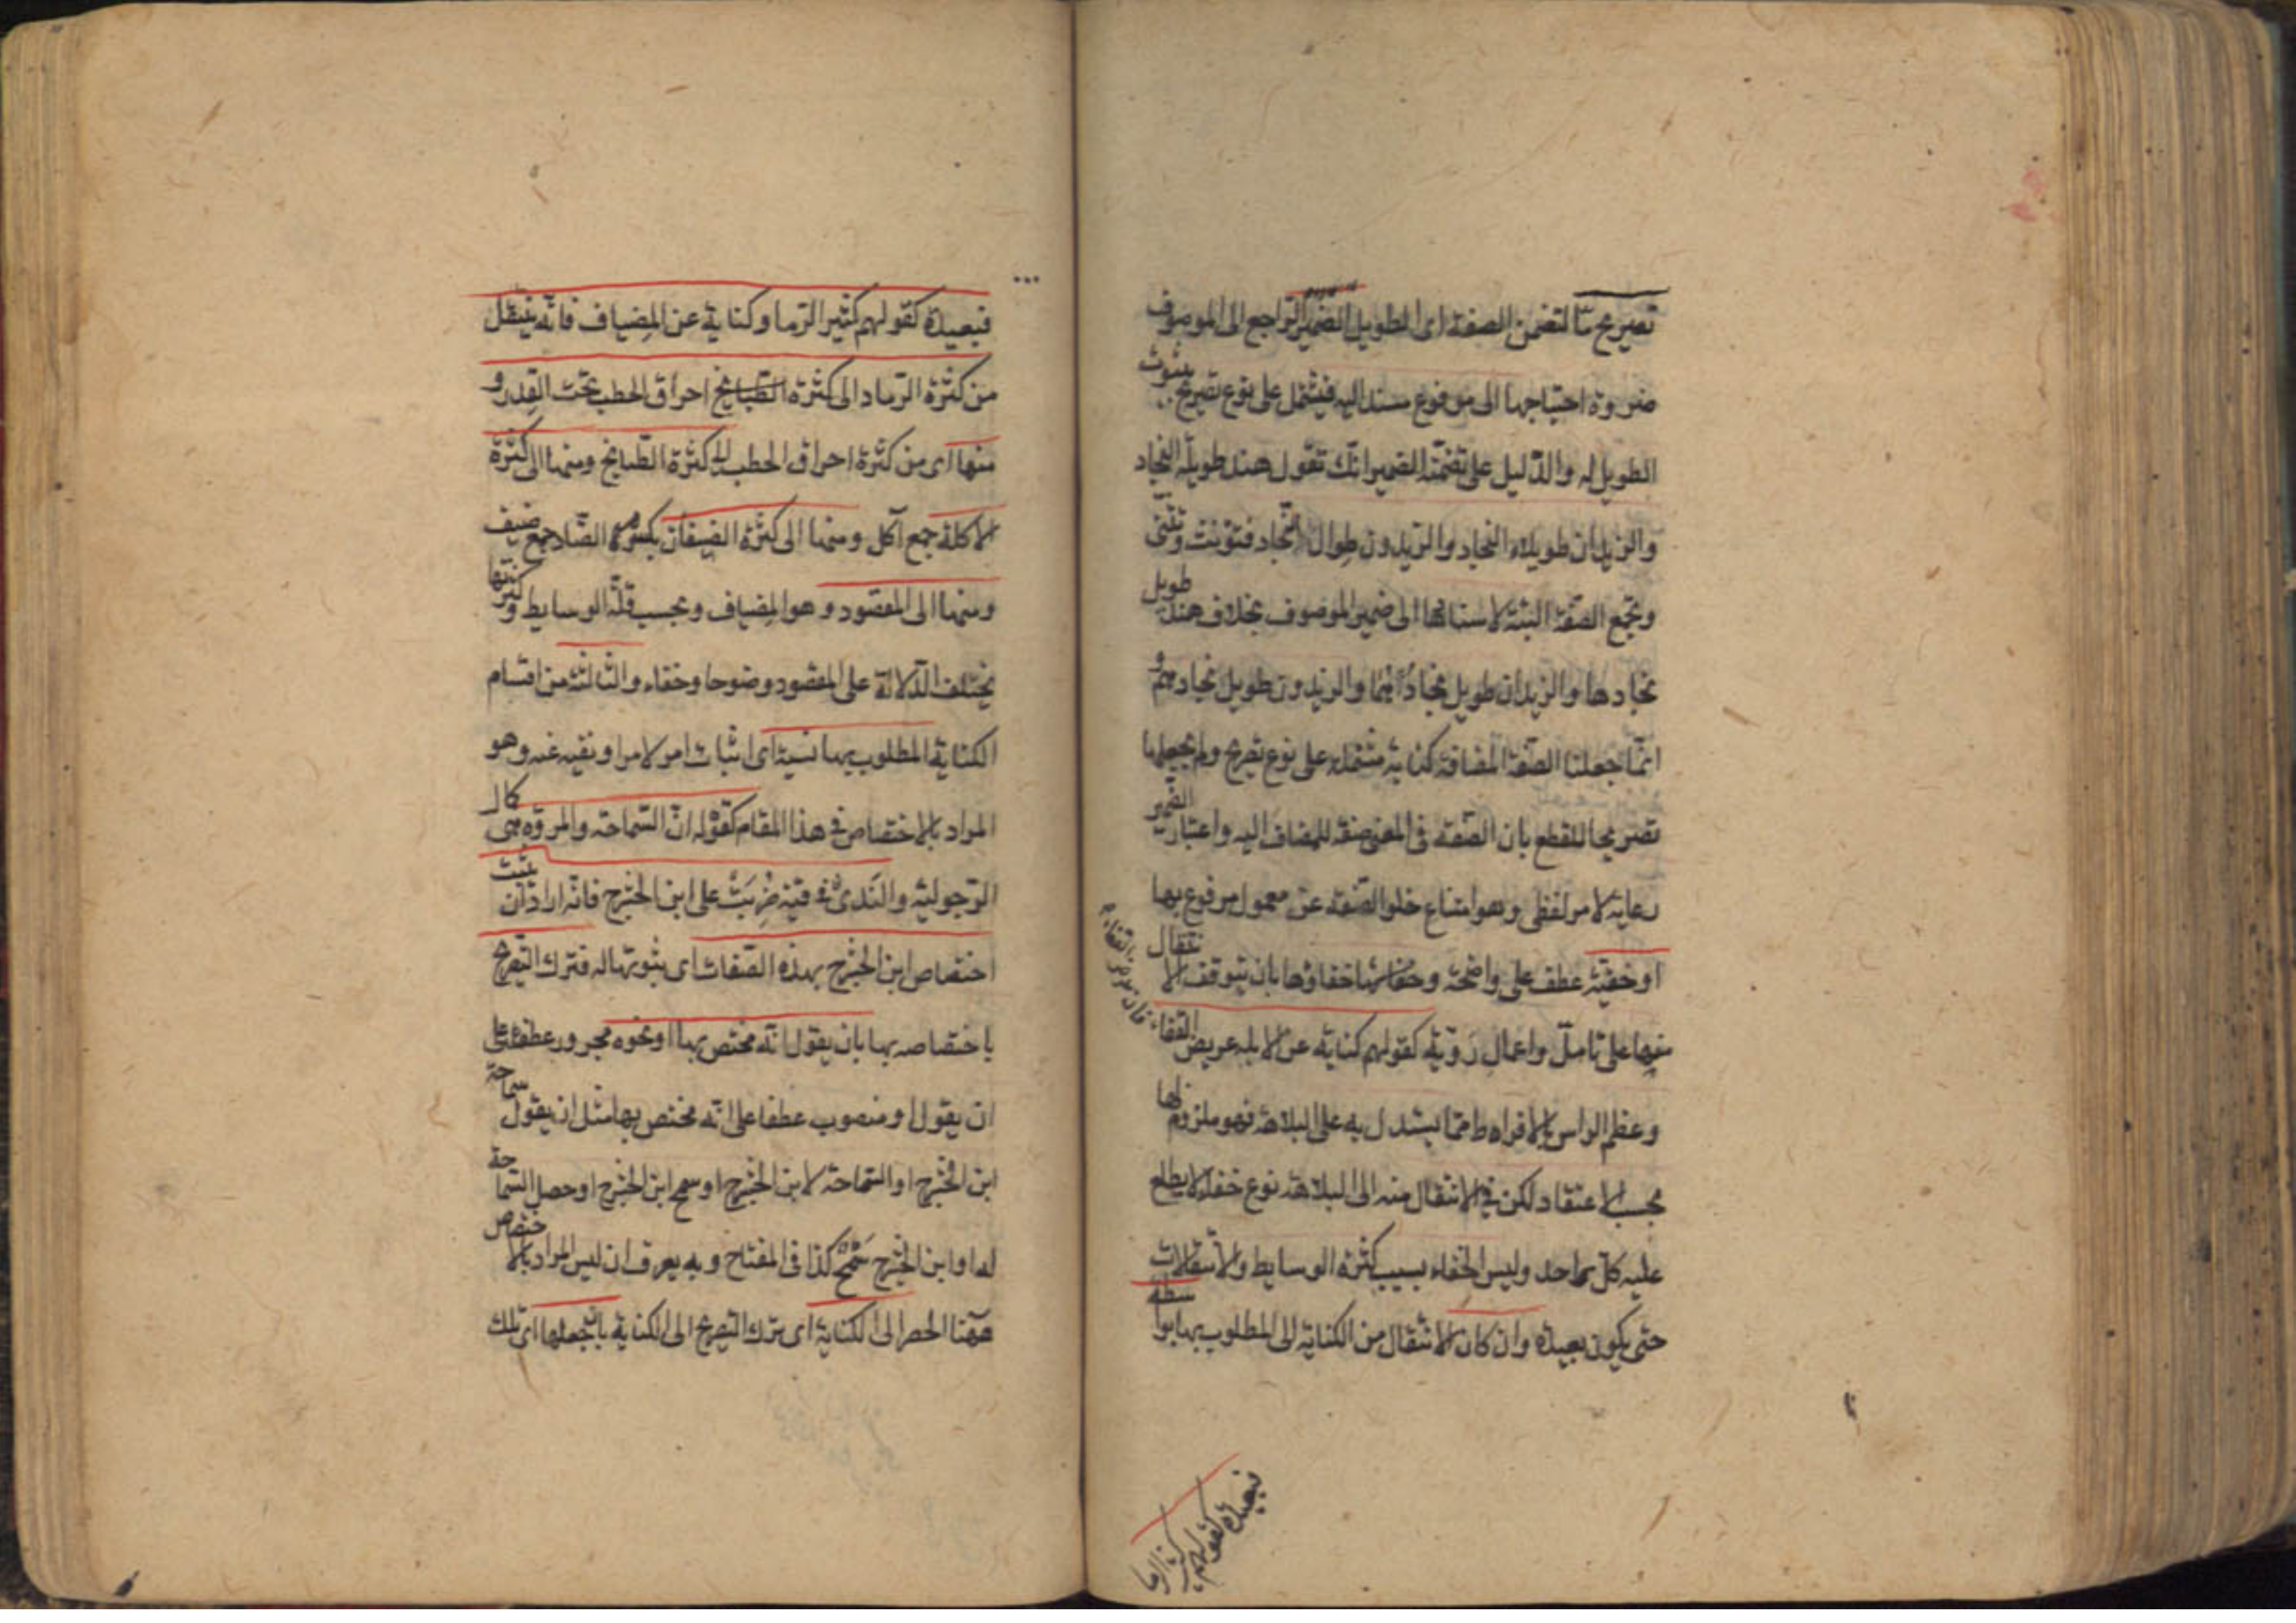 تصريح ما لتضمن الصفة اى الطويل الضمير الراجع الى الموصوف
ضرورة احتياجها الى مرفوع مسند اليه فيشتمل على نوع تصريح بثبوت
الطويل له والدّليل على تضمّنه الضمير انّك تقول هند طويلة النجاد
والزيدان طويلا النجاد والزيدون طوال النّجاد فتؤنث وتثنّى
وتجمع الصّفة البتة لاسنادها الى ضمير الموصوف بخلاف هند طويل
نجادها والزيدان طويل نجادُهُما والزيدون طويل نجادهم و
انّما جعلنا الصّفة المضافة كناية مشتملة على نوع تصريح ولم نجعلها
تصريحا للقطع بان الصّفة فى المعنى صفة للمضاف اليه واعتبار الضّمير
رعاية لامر لفظى وهو امتناع خلو الصّفة عن معمول مرفوع بها
او خفيّة عطف على واضحة وخفاؤها بان يتوقف الانتقال
منها على تامّل واعمال رَوّية كقولهم كناية عن الابله عريض القفاء
القفاء فان عرض
وعظم الراس بالافراط ممّا يستدل به على البلاهة فهو ملزوم لها
بحسب الاعتقاد لكن فى الانتقال منه الى البلاهة نوع خفاء لا يطلع
عليه كلّ واحد وليس الخفاء بسبب كثرة الوسايط والانتقالات
حتى يكون بعيدة وان كان الانتقال من الكناية الى المطلوب بها بواسطة
فبعيدة كقولهم كثير الرما
فبعيدة كقولهم كثير الرّماد كناية عن المِضياف فانّه ينتقل
من كثرة الرّماد الى كثرة احراق الحطب تحت القِدر و
منها اى من كثرة احراق الحطب الى كثرة الطّبايخ ومنها الى كثرة
الاكلة جمع آكل ومنها الى كثرة الضيفان بكسر الضّاد جمع ضيف
ومنها الى المقصود وهو المِضياف وبحسب قلّة الوسايط وكثرتها
يختلف الدّلالة على المقصود وضوحا وخفاء والثالثة من اقسام
الكناية المطلوب بها نسبة اى اثبات امر لامر او نفيه عنه وهو
المراد بالاختصاص فى هذا المقام كقوله انّ السّماحة والمروّة هى كمال
الرّجوليّة والنَدىٰ فى قبّة ضُرِبَتْ على ابن الحَشْرج فانّه اراد ان يثبت
اختصاص ابن الحشرج بهذه الصّفات اى ثبوتها له فترك التّصريح
باختصاصه بها بان يقول انّه مختص بها او نحوه مجرور عطفا على
ان يقول او منصوب عطفا على انّه مختص بها مثل ان يقول سماحة
ابن الحشرج او السّماحة لابن الحشرج او سمح ابن الحشرج او حصل السّماحة
له او ابن الحشرج سَمْحٌ كذا فى المفتاح وبه يعرف ان ليس المراد بالاختصاص
ههنا الحصر الى الكناية اى ترك التصريح الى الكناية بان جعلها اى تلك